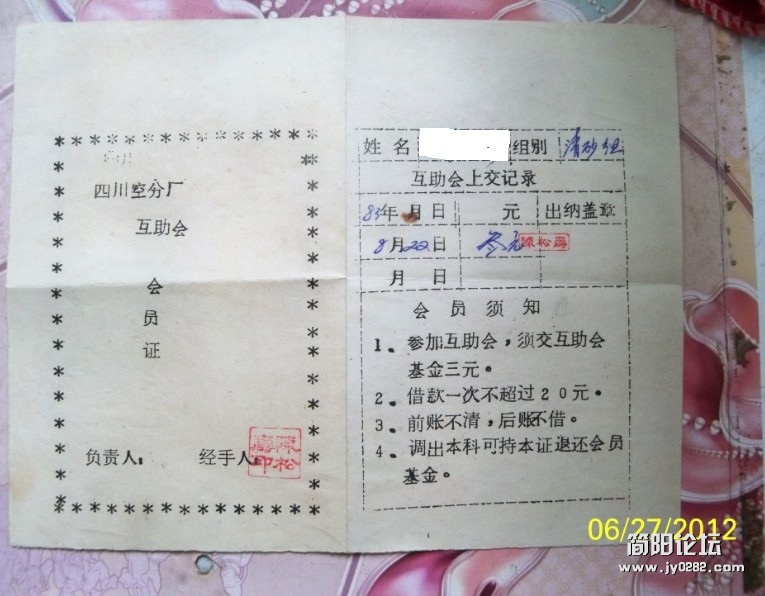 四川空分厂
互助会
会
员
证
负责人： 经手人：
陈松
嘉印
姓名 组别 清砂组
互助会上交记录
83年 月 日 元 出纳盖章
8月22日 叁元 陈松嘉
月 日
会员须知
1、参加互助会，须交互助会
基金三元。
2、借款一次不超过20元。
3、前账不清，后账不借。
4、调出本科可持本证退还会员
基金。
06/27/2012
简阳论坛
www.jy0282.com